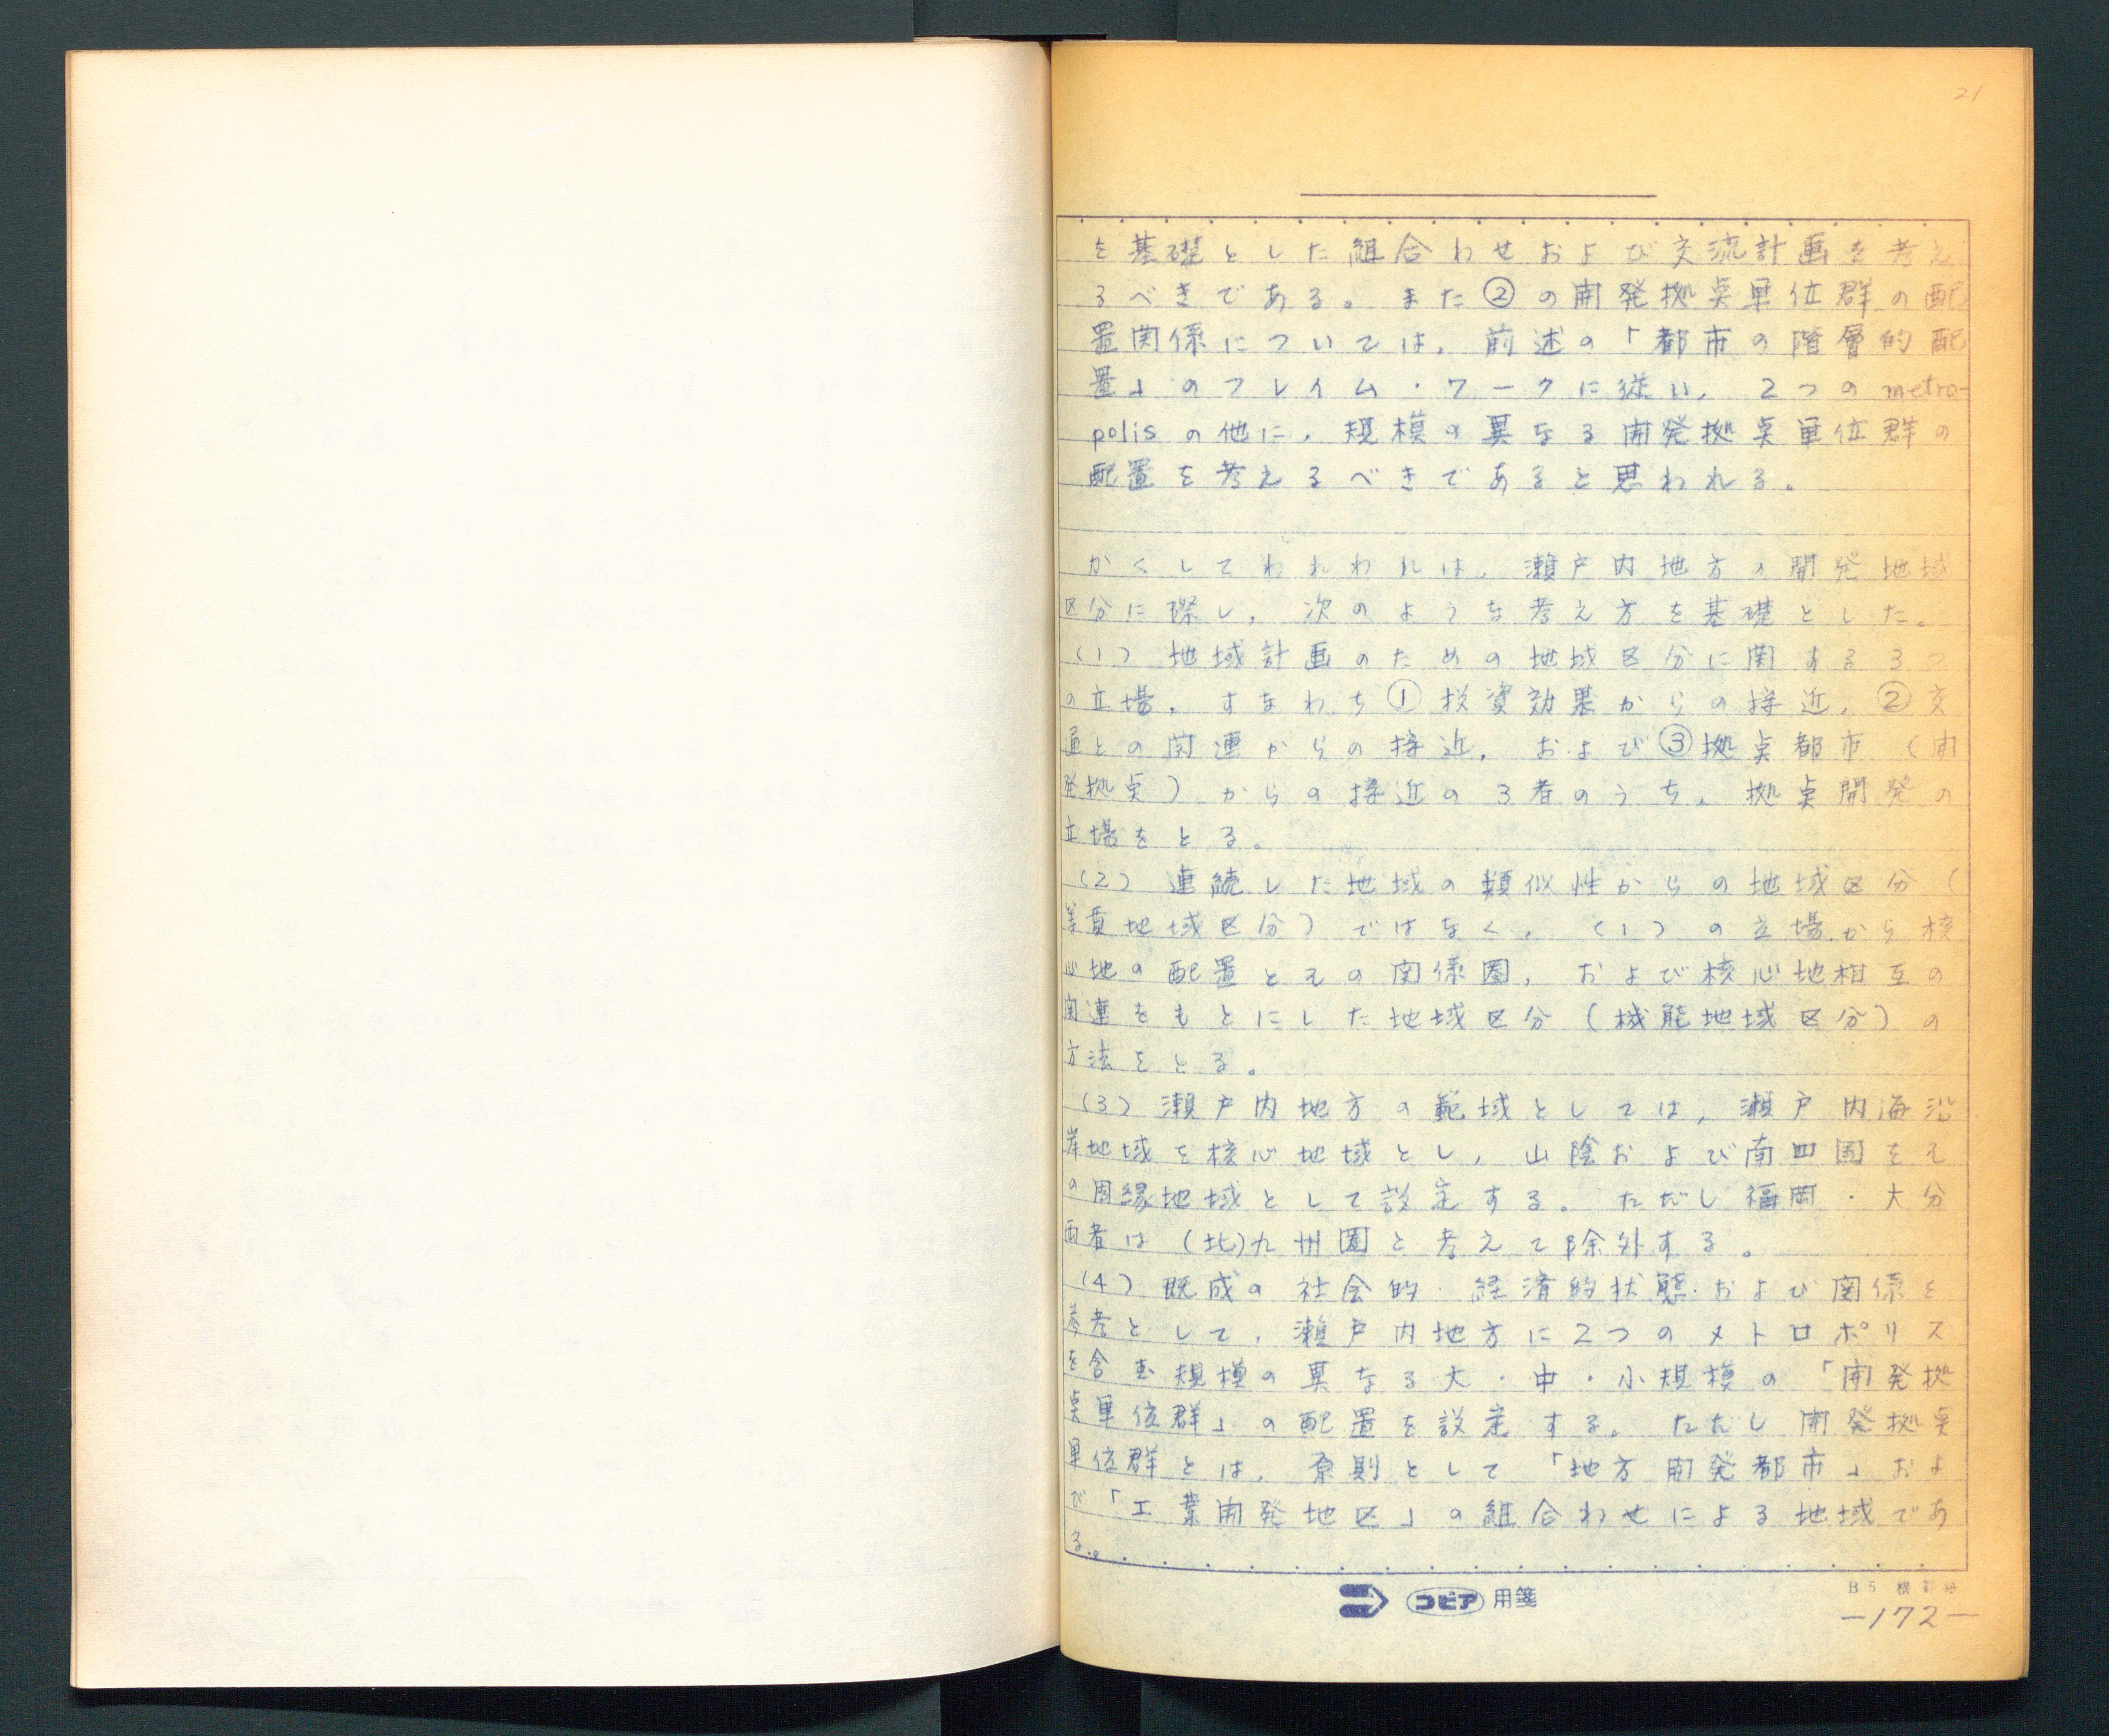 21
を基礎とした組合わせおよび交流計画を考え
るべきである。また②の開発拠点単位群の配
置関係については，前述の「都市の階層的配
置」のフレイム・ワークに従い，2つのmetro-
polisの他に，規模の異なる開発拠点単位群の
配置を考えるべきであると思われる。
かくしてわれわれは，瀬戸内地方の開発地域
区分に際し，次のような考え方を基礎とした。
(1) 地域計画のための地域区分に関する3つ
の立場，すなわち①投資効果からの接近，②交
通との関連からの接近，および③拠点都市（開
発拠点）からの接近の3者のうち，拠点開発の
立場をとる。
(2) 連続した地域の類似性からの地域区分（
等質地域区分）ではなく，(1)の立場から核
心地の配置とその関係圏，および核心地相互の
関連をもとにした地域区分（機能地域区分）の
方法をとる。
(3) 瀬戸内地方の範域としては，瀬戸内海沿
岸地域を核心地域とし，山陰および南四国をそ
の周縁地域として設定する。ただし福岡・大分
両者は（北）九州圏と考えて除外する。
(4) 既成の社会的・経済的状態および関係を
参考として，瀬戸内地方に2つのメトロポリス
を含む規模の異なる大・中・小規模の「開発拠
点単位群」の配置を設定する。ただし開発拠点
単位群とは，原則として「地方開発都市」およ
び「工業開発地区」の組合わせによる地域であ
る。
コピア用箋
B5 横罫
―172―